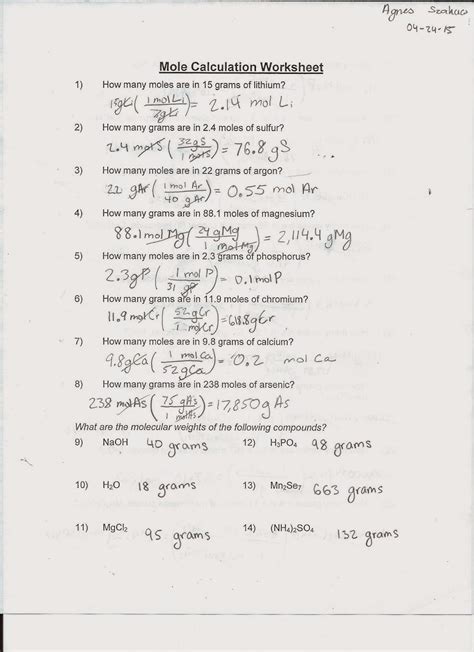 Agnes
04-24-15
Mole Calculation Worksheet
1) How many moles are in 15 grams of lithium?
15gLi(1 mol Li/7gLi)= 2.14 mol Li
2) How many grams are in 2.4 moles of sulfur?
2.4 molS(32gS/1molS)=76.8 gS
3) How many moles are in 22 grams of argon?
22 gAr(1 mol Ar/40 gAr)= 0.55 mol Ar
4) How many grams are in 88.1 moles of magnesium?
88.1mol Mg(24gMg/1 molMg)= 2,114.4 gMg
5) How many moles are in 2.3 grams of phosphorus?
2.3gP(1 mol P/31 gP)= 0.1molP
6) How many grams are in 11.9 moles of chromium?
11.9 molCr(52gCr/1 molCr)=618.8gCr
7) How many moles are in 9.8 grams of calcium?
9.8gCa(1 mol Ca/52gCa)=0.2 mol Ca
8) How many grams are in 238 moles of arsenic?
238 molAs(75 gAs/1 molAs)=17,850g As
What are the molecular weights of the following compounds?
9) NaOH 40 grams 12) H₃PO₄ 98 grams
10) H₂O 18 grams 13) Mn₂Se₇ 663 grams
11) MgCl₂ 95 grams 14) (NH₄)₂SO₄ 132 grams